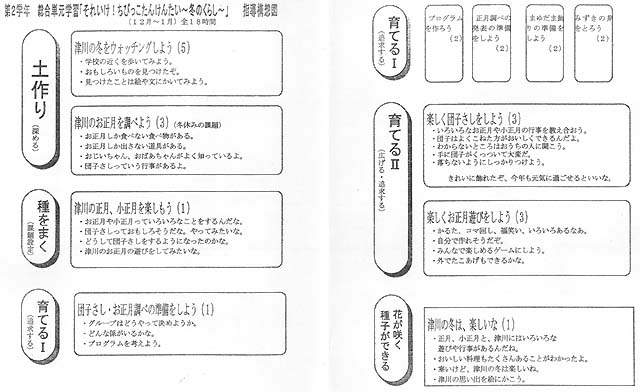 第2学年 総合単元学習「それいけ！ちびっこたんけんたい～冬のくらし～」 指導構想図
（12月～1月）全18時間
土作り
（深める）
津川の冬をウォッチングしよう（5）
・学校の近くを歩いてみよう。
・おもしろいものを見つけたぞ。
・見つけたことは絵や文にかいてみよう。
津川のお正月を調べよう（3）（冬休みの課題）
・お正月しか食べない食べ物がある。
・お正月しか出さない道具がある。
・おじいちゃん、おばあちゃんがよく知っているよ。
・団子さしっていう行事があるよ。
種をまく
（課題設定）
津川の正月、小正月を楽しもう（1）
・お正月や小正月っていろいろなことをするんだな。
・団子さしっておもしろそうだな。やってみたいな。
・どうして団子さしをするようになったのかな。
・津川のお正月の遊びをしてみたいな。
育てるⅠ
（追求する）
団子さし・お正月調べの準備をしよう（1）
・グループはどうやって決めようか。
・どんな係がいるかな。
・プログラムを考えよう。
育てるⅠ
（追求する）
プログラム
を作ろう
（2）
正月調べの
発表の準備
をしよう
（2）
まゆだま飾
りの準備を
しよう
（2）
みずきの身
をとろう
（2）
育てるⅡ
（広げる・追求する）
楽しく団子さしをしよう（3）
・いろいろなお正月や小正月の行事を教え合おう。
・団子はよくこねた方がおいしくできるんだよ。
・わからないところはおうちの人に聞こう。
・手に団子がくっついて大変だ。
・落ちないようにしっかりつけよう。
きれいに飾れたぞ、今年も元気に過ごせるといいな。
楽しくお正月遊びをしよう（3）
・かるた、コマ回し、福笑い、いろいろあるなあ。
・自分で作れそうだぞ。
・みんなで楽しめるゲームにしよう。
・外でたこあげもできるかな。
花が咲く
種子ができる
津川の冬は、楽しいな（1）
・正月、小正月と、津川にはいろいろな
遊びや行事があるんだね。
・おいしい料理もたくさんあることがわかったよ。
・寒いけど、津川の冬は楽しいね。
・津川の思い出を絵にかこう。